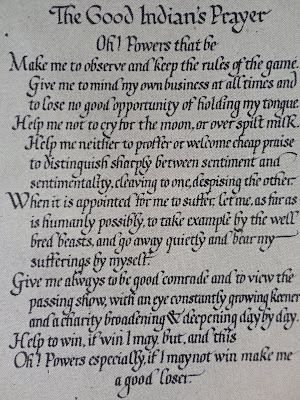 The Good Indian's Prayer
Oh! Powers that be
Make me to observe and keep the rules of the game.
Give me to mind my own business at all times and
to lose no good opportunity of holding my tongue.
Help me not to cry for the moon, or over spilt milk.
Help me neither to proffer or welcome cheap praise
to distinguish sharply between sentiment and
sentimentality, cleaving to one, despising the other.
When it is appointed for me to suffer, let me, as far as
is humanly possibly, to take example by the well
bred beasts, and go away quietly and bear my
sufferings by myself.
Give me always to be good comrade and to view the
passing show, with an eye constantly growing keener
and a charity broadening & deepening day by day.
Help to win, if win I may, but, and this
Oh! Powers especially, if I may not win make me
a good loser.